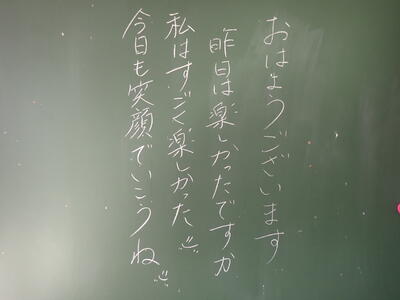 おはようございます
昨日は楽しかったですか
私はすごく楽しかった
今日も笑顔でいこうね